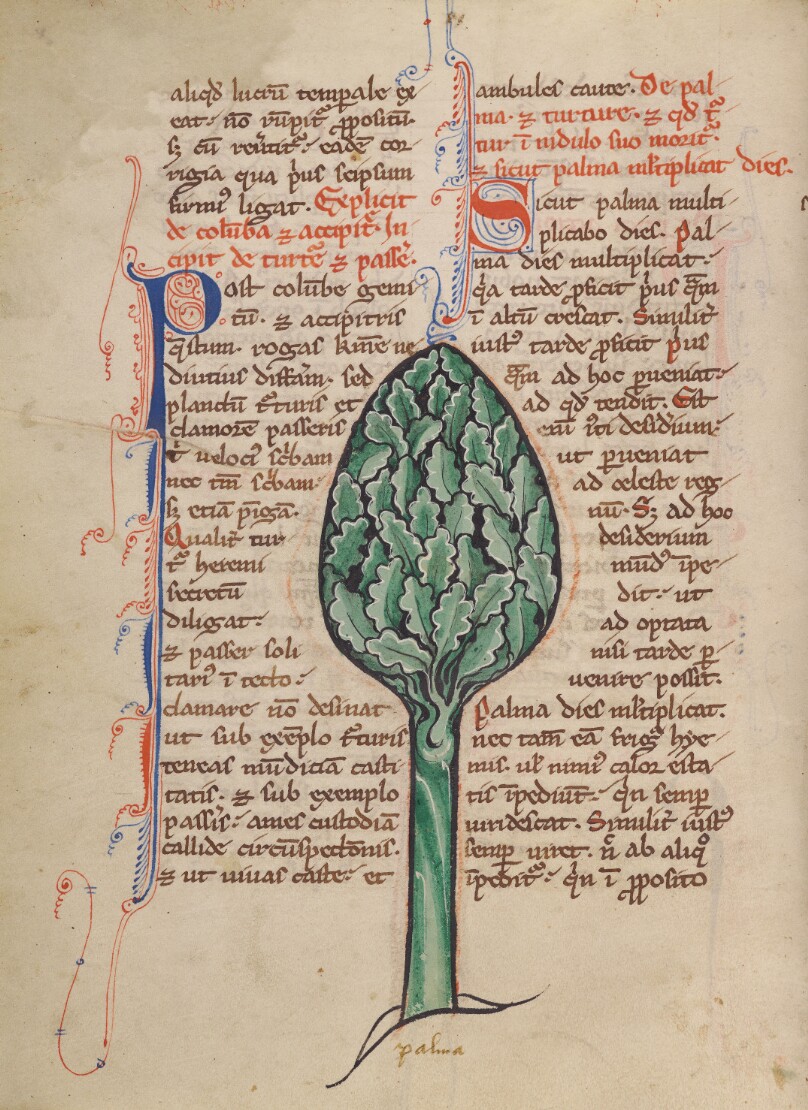 aliqd lucrū temporale ex
eat· nō rūpit᷑ ꝓpositū·
sꝫ cū reūtit᷑ eadē cor
rigia qua p̍us seipsum
firmi᷒ ligat. Explicit
de colūba ⁊ accipit᷑· In
cipit de turtē ⁊ passē·
Post colūbe gemi
tū· ⁊ accipitris
q̄stum· rogas km̄e ne
diutius differ̄am· sed
planctū t᷑turis et
clamorē passeris
t̄ veloci᷒ sc̍bam
nec tm̄ sc̍bam
sꝫ etiā pīgā·
Qualit᷑ tur
t᷑ heremi
secretū
diligat·
⁊ passer soli
tari᷒ ī tecto·
clamare nō desinat
ut sub exēplo t᷑turis
teneas mūdiciā casti
tatis· ⁊ sub exemplo
passis· ames custodiā
callide circūspectōnis·
⁊ ut vivas caste· et
ambules caute· De pal
ma· ⁊ turture· ⁊ qd t᷑
tur ī nidulo suo morit᷑·
⁊ sicut palma ml̄tiplicat dies·
Sicut palma multi
plicabo dies· Pal
ma dies multiplicat·
q̍a tarde ꝓficit p̍us q̄m
ī altū crescat· Similit᷑
iust᷒ tarde ꝓficit p̍us
q̄m ad hoc ꝑueniat·
ad qd tendit· Est
enī iti desideriū·
ut ꝑveniat
ad celeste reg
nū· Sꝫ ad hoc
desiderium
mūd᷒ īpe
dit· ut
ad optata
nisi tarde ꝑ
venire possit·
Palma dies ml̄tiplicat·
nec tam̄ eā frig᷒ hye
mis· ul̄ nimi᷒ calor esta
tis īpediūt· q̍n semꝑ
viridescat· Similit᷑ iust᷒
semꝑ viret· n̄ ab aliqͦ
īpedit᷑· q̍n ī ꝓposito
palma